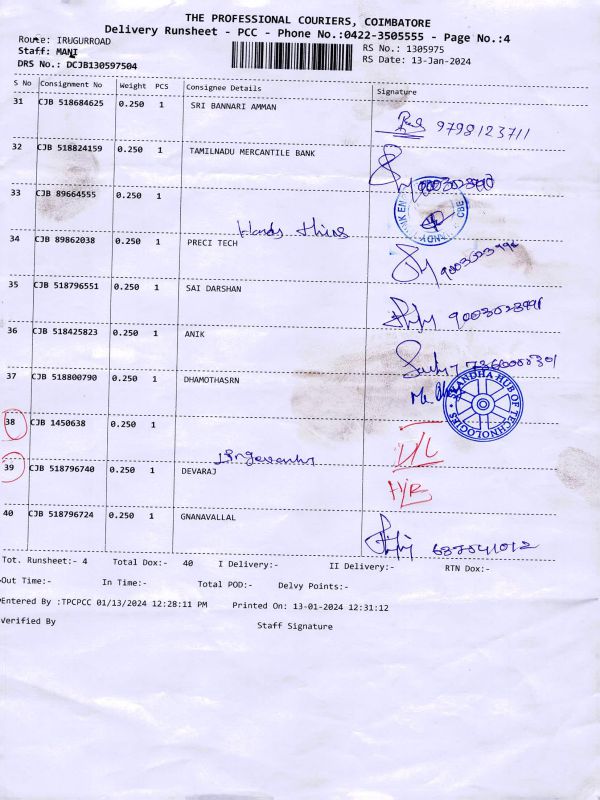 THE PROFESSIONAL COURIERS, COIMBATORE
Delivery Runsheet - PCC - Phone No.:0422-3505555 - Page No.:4
Route: IRUGURROAD
RS No.: 1305975
Staff: MANI
RS Date: 13-Jan-2024
DRS No.: DCJB130597504
S No Consignment No Weight PCS Consignee Details Signature
31 CJB 518684625 0.250 1 SRI BANNARI AMMAN
9798123711
32 CJB 518824159 0.250 1 TAMILNADU MERCANTILE BANK
33 CJB 89664555 0.250 1
CBE
34 CJB 89862038 0.250 1 PRECI TECH
35 CJB 518796551 0.250 1 SAI DARSHAN
36 CJB 518425823 0.250 1 ANIK
37 CJB 518800790 0.250 1 DHAMOTHASRN
HUB OF TECHNOLOGIES
38 CJB 1450638 0.250 1
39 CJB 518796740 0.250 1 DEVARAJ
40 CJB 518796724 0.250 1 GNANAVALLAL
Tot. Runsheet:- 4 Total Dox:- 40 I Delivery:- II Delivery:- RTN Dox:-
Out Time:- In Time:- Total POD:- Delvy Points:-
Entered By :TPCPCC 01/13/2024 12:28:11 PM Printed On: 13-01-2024 12:31:12
Verified By Staff Signature